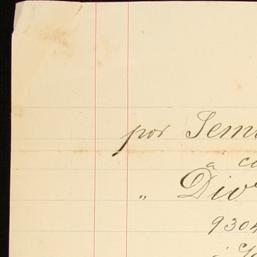 por Sem
a co
" Div
9304